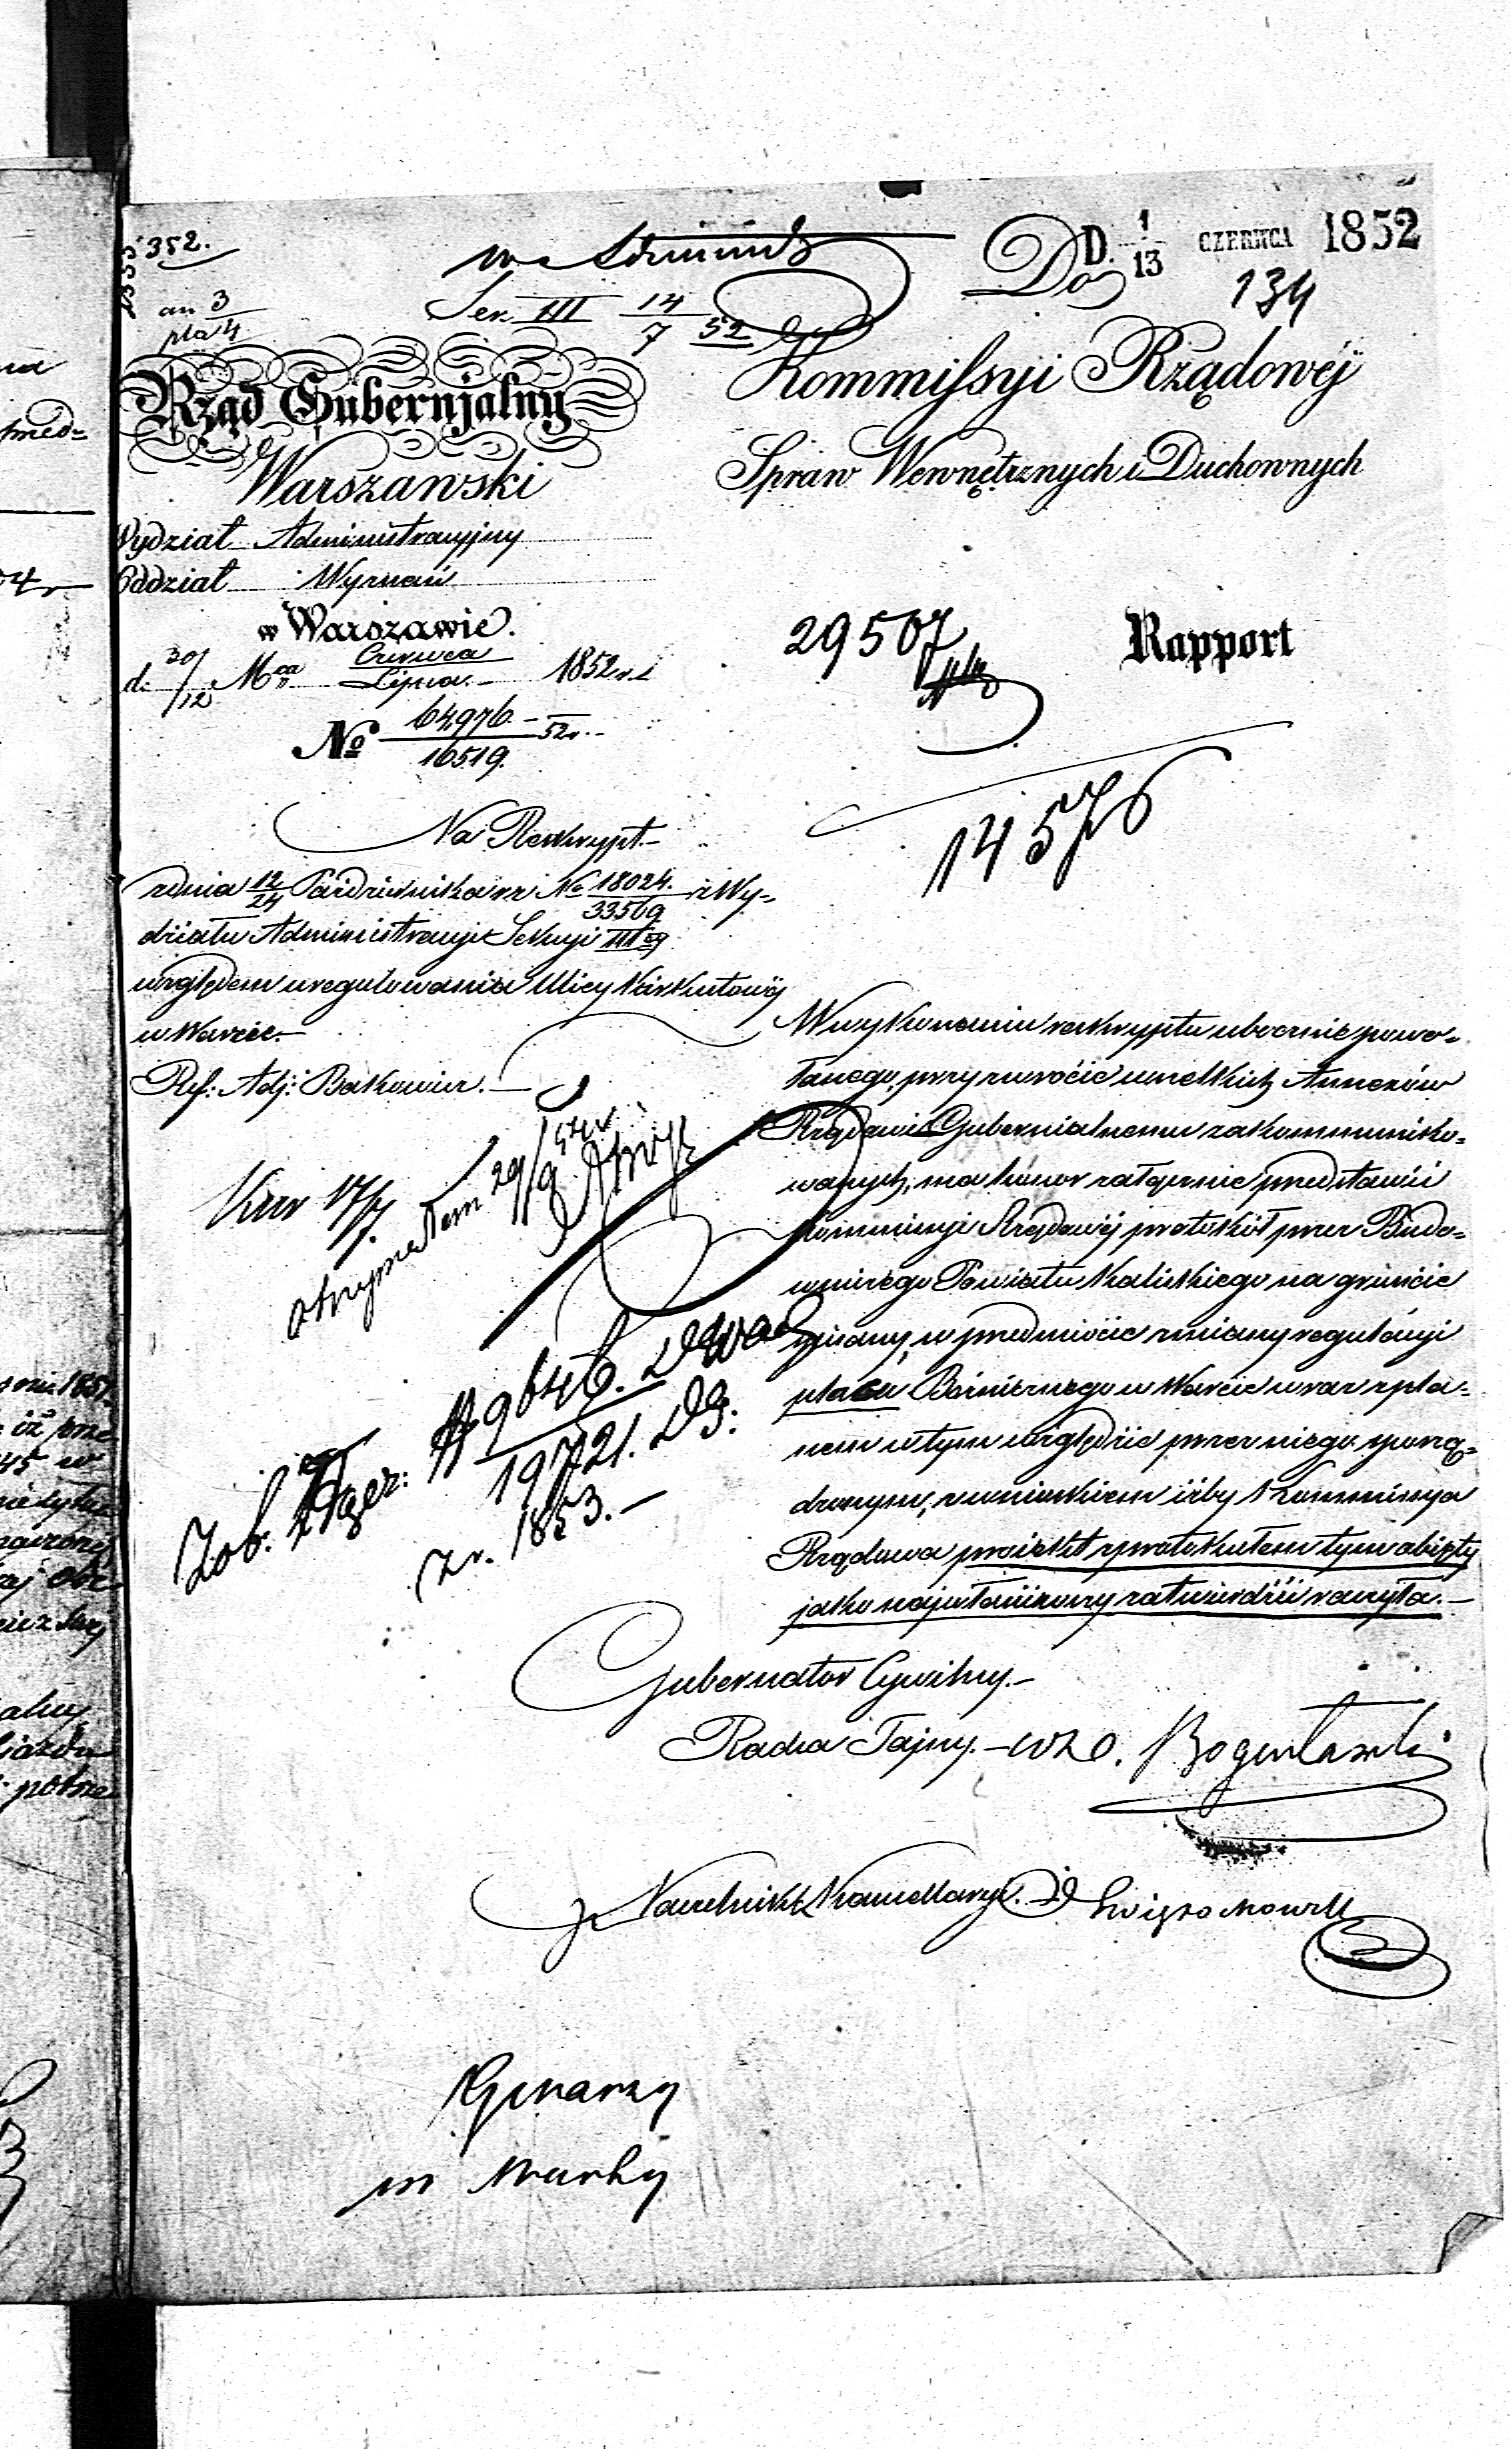 352.
an 3
pla 4
Ser. III 14/7 52
Do
D. 1/13 CZERWCA 1852
134
Rząd Gubernjalny
Warszawski
Kommissyi Rządowéj
Spraw Wewnętrznych i Duchownych
Wydział Administracyjny
Oddział Wyznań
w Warszawie.
d. 30/12 Mca Czerwca/Lipca 1852 r.
No 64976/16519 52 r.
29507
Rapport
14576
Na Reskrypt
z dnia 12/24 Października r.z. No 18024/33569 z Wy=
działu Administracyi Sekcyi III
względem uregulowania Ulicy
w Warcie.
Ref: Adj:
W wykonaniu reskryptu ubocznie powo=
łanego, przy zwrócie wszelkich Annexów
Rządowi Gubernialnemu zakommuniko=
wanych, ma honor załącznie przedstawić
Kommissyi Rządowéj protokół przez Budo=
wniczego Powiatu Kaliskiego na gruncie
spisany, w przedmiocie zmiany regulacyi
placu Bóżniczego w Warcie wraz z pla=
nem w tym względzie przez niego sporzą=
dzonym, z wnioskiem iżby Kommissya
Rządowa projekt z protokułem tym objęty
jako najwłaściwszy zatwierdzić raczyła.
Kxw 17/7
otrzymałem 29/9
Zob.
No 9646. D
19721. D
z r. 1853.
Gubernator Cywilny.
Radca Tajny.
Naczelnik Kancellaryi